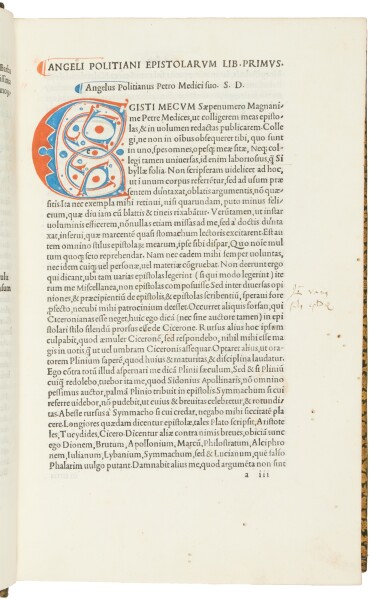 ANGELI POLITIANI EPISTOLARVM LIB. PRIMVS.
Angelus Politianus Petro Medici suo. S. D.
EGISTI MECVM Sæpenumero Magnani/
me Petre Medices, ut colligerem meas episto/
las, & in uolumen redactas publicarem. Colle
gi, ne non in oïbus obsequerer tibi, quo sunt
in uno, spes omnes, opesq; meæ sitæ, Neq; col/
legi tamen uniuersas, id enim laboriosius, q̃ Si
byllæ folia. Non scripseram uidelicet ad hoc,
ut í unum corpus referrétur, sed ad usum præ
sentem dũtaxat, oblatis argumentis, nõ quæ/
sitis. Ita nec exempla mihi retinui, nisi quarundam, puto minus seli/
cium, quæ diu iam cũ blattis & tineis rixabãtur. Verũtamen, ut instar
uoluminis efficerem, nõnullas etiam missas ad me, sed a' doctis dũnta
xat, inserui, quæ marcentē quasi stomachum lectoris excitarent. Est au
tem omnino stilus epistolarũ mearum, ipse sibi dispar, Quo noïe mul
tum quoq; scito reprehendar. Nam nec eadem mihi sem per uoluntas,
nec idem cuiq; uel personæ, uel materiæ cõgruebat. Non deerunt ergo
qui dicant, ubi tam uarias epistolas legerint ( si qui modo legerint) ite
rum me Miscellanea, non epistolas composuisse. Sed inter diuersas opi
niones, & præcipientiũ de epistolis, & epistolas scribentiũ, speraui fore
editi (nec sine auctore tamen) in epi
stolari stilo silendũ prorsus esse de Cicerone. Rursus alius hoc ipsum
culpabit, quod æmuler Ciceronē, sed respondebo, nihil mihi esse ma
gis in uotis, q̃ ut uel umbram Ciceronis assequar. Optaret alius, ut ora/
torem Plinium saperē, quod huius & maturitas, & disciplina laudatur.
Ego cõtra totũ illud aspernari me dicã Plinii sæculum, Sed & si Pliniũ
cuiq; redolebo, tuebor ita me, quod Sidonius Apollinaris, nõ omnino
pessimus auctor, palmã Plinio tribuit in epistolis. Symmachum si cui
referre uidebor, nõ pudebit, ut cuius & breuitas celebretur, & rotundi/
tas. Abesse rursus a' Symmacho si cui credar, negabo mihi siccitatē pla
cere. Longiores quædam dicentur epistolæ, tales Plato scripsit, Aristote
les, Tucydides, Cicero. Dicentur aliæ cõtra nimis breues, obiciã tunc
ego Dionem, Brutum, Apollonium, Marcũ, Philostratum, Alciphro
nem, Iulianum, Lybanium, Symmachum, sed & Lucianum, quē falso
Phalarim uulgo putant. Damnabit alius me, quod argumēta non sint
a iii